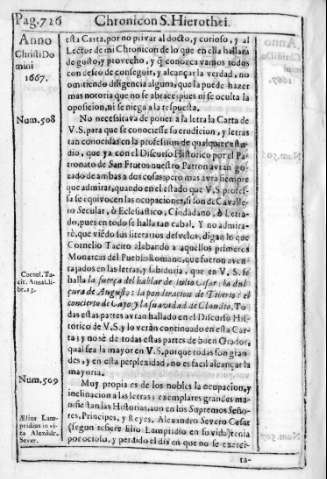 Pag. 726
Chronicon S. Hierothei.
Anno
Christi Do
mini
1667.
esta Carta, por no privar al docto, y curioso, y al
Lector de mi Chronicon de lo que en ella hallarà
de gusto, y provecho, y q̃ conozca vamos todos
con deseo de conseguir, y alcançar la verdad, no
omitiendo diligencia alguna, que la puede hazer
mas notoria que no se abrace, pues ni se oculta la
oposicion, ni se niega a la respuesta.
Num. 508
No necessitava de poner a la letra la Carta de
V. S. para que se conociesse su erudicion, y letras
tan conocidas en la profession de qualquer estu-
dio, que ya con el Discurso Historico por el Pa-
tronato de San Frutos nuestro Patron avrán go-
zado de ambas a dos cosas; pero mas avrá siempre
que admirar, quando en el estado que V. S. profes-
sa se equivocan las ocupaciones, si son de Cavalle-
ro Secular, ò Eclesiastico, Ciudadano, ò Letra-
do, pues en todo se halla tan cabal. Y no admira-
rè, que viẽdo sus literarios desvelos, digan lo que
Cornelio Tacito alabando a aquellos primeros
Monarcas del Pueblo Romano, que fueron aven-
tajados en las letras, y sabiduria, que en V. S. se
halla la fuerça del hablar de Iulio Cesar; la dul-
çura de Augusto; la ponderacion de Tiberio; el
concierto de Cayo; y la suavidad de Claudio. To
das estas partes avran hallado en el Discurso His-
torico de V. S. y lo verán continuado en esta Car-
ta; y no sè de todas estas partes de buen Orador,
qual sea la mayor en V. S. porque todas son gran-
des, y en esta perplexidad, no es facil alcançar la
mayoria.
Cornel. Ta-
cit. Annal. li-
br. 13.
Num. 509
Muy propia es de los nobles la ocupacion, y
inclinacion a las letras; exemplares grandes ma-
nifiestan las Historias, aun en los Supremos Seño-
res, Principes, y Reyes. Alexandro Severo Cesar
(segun refiere Elio Lampridio en su vida) tenia
por ocioso, y perdido el dia en que no se exerci-
Ælius Lam-
pridius in vi-
ta Alexãdr.
Sever.
ta-